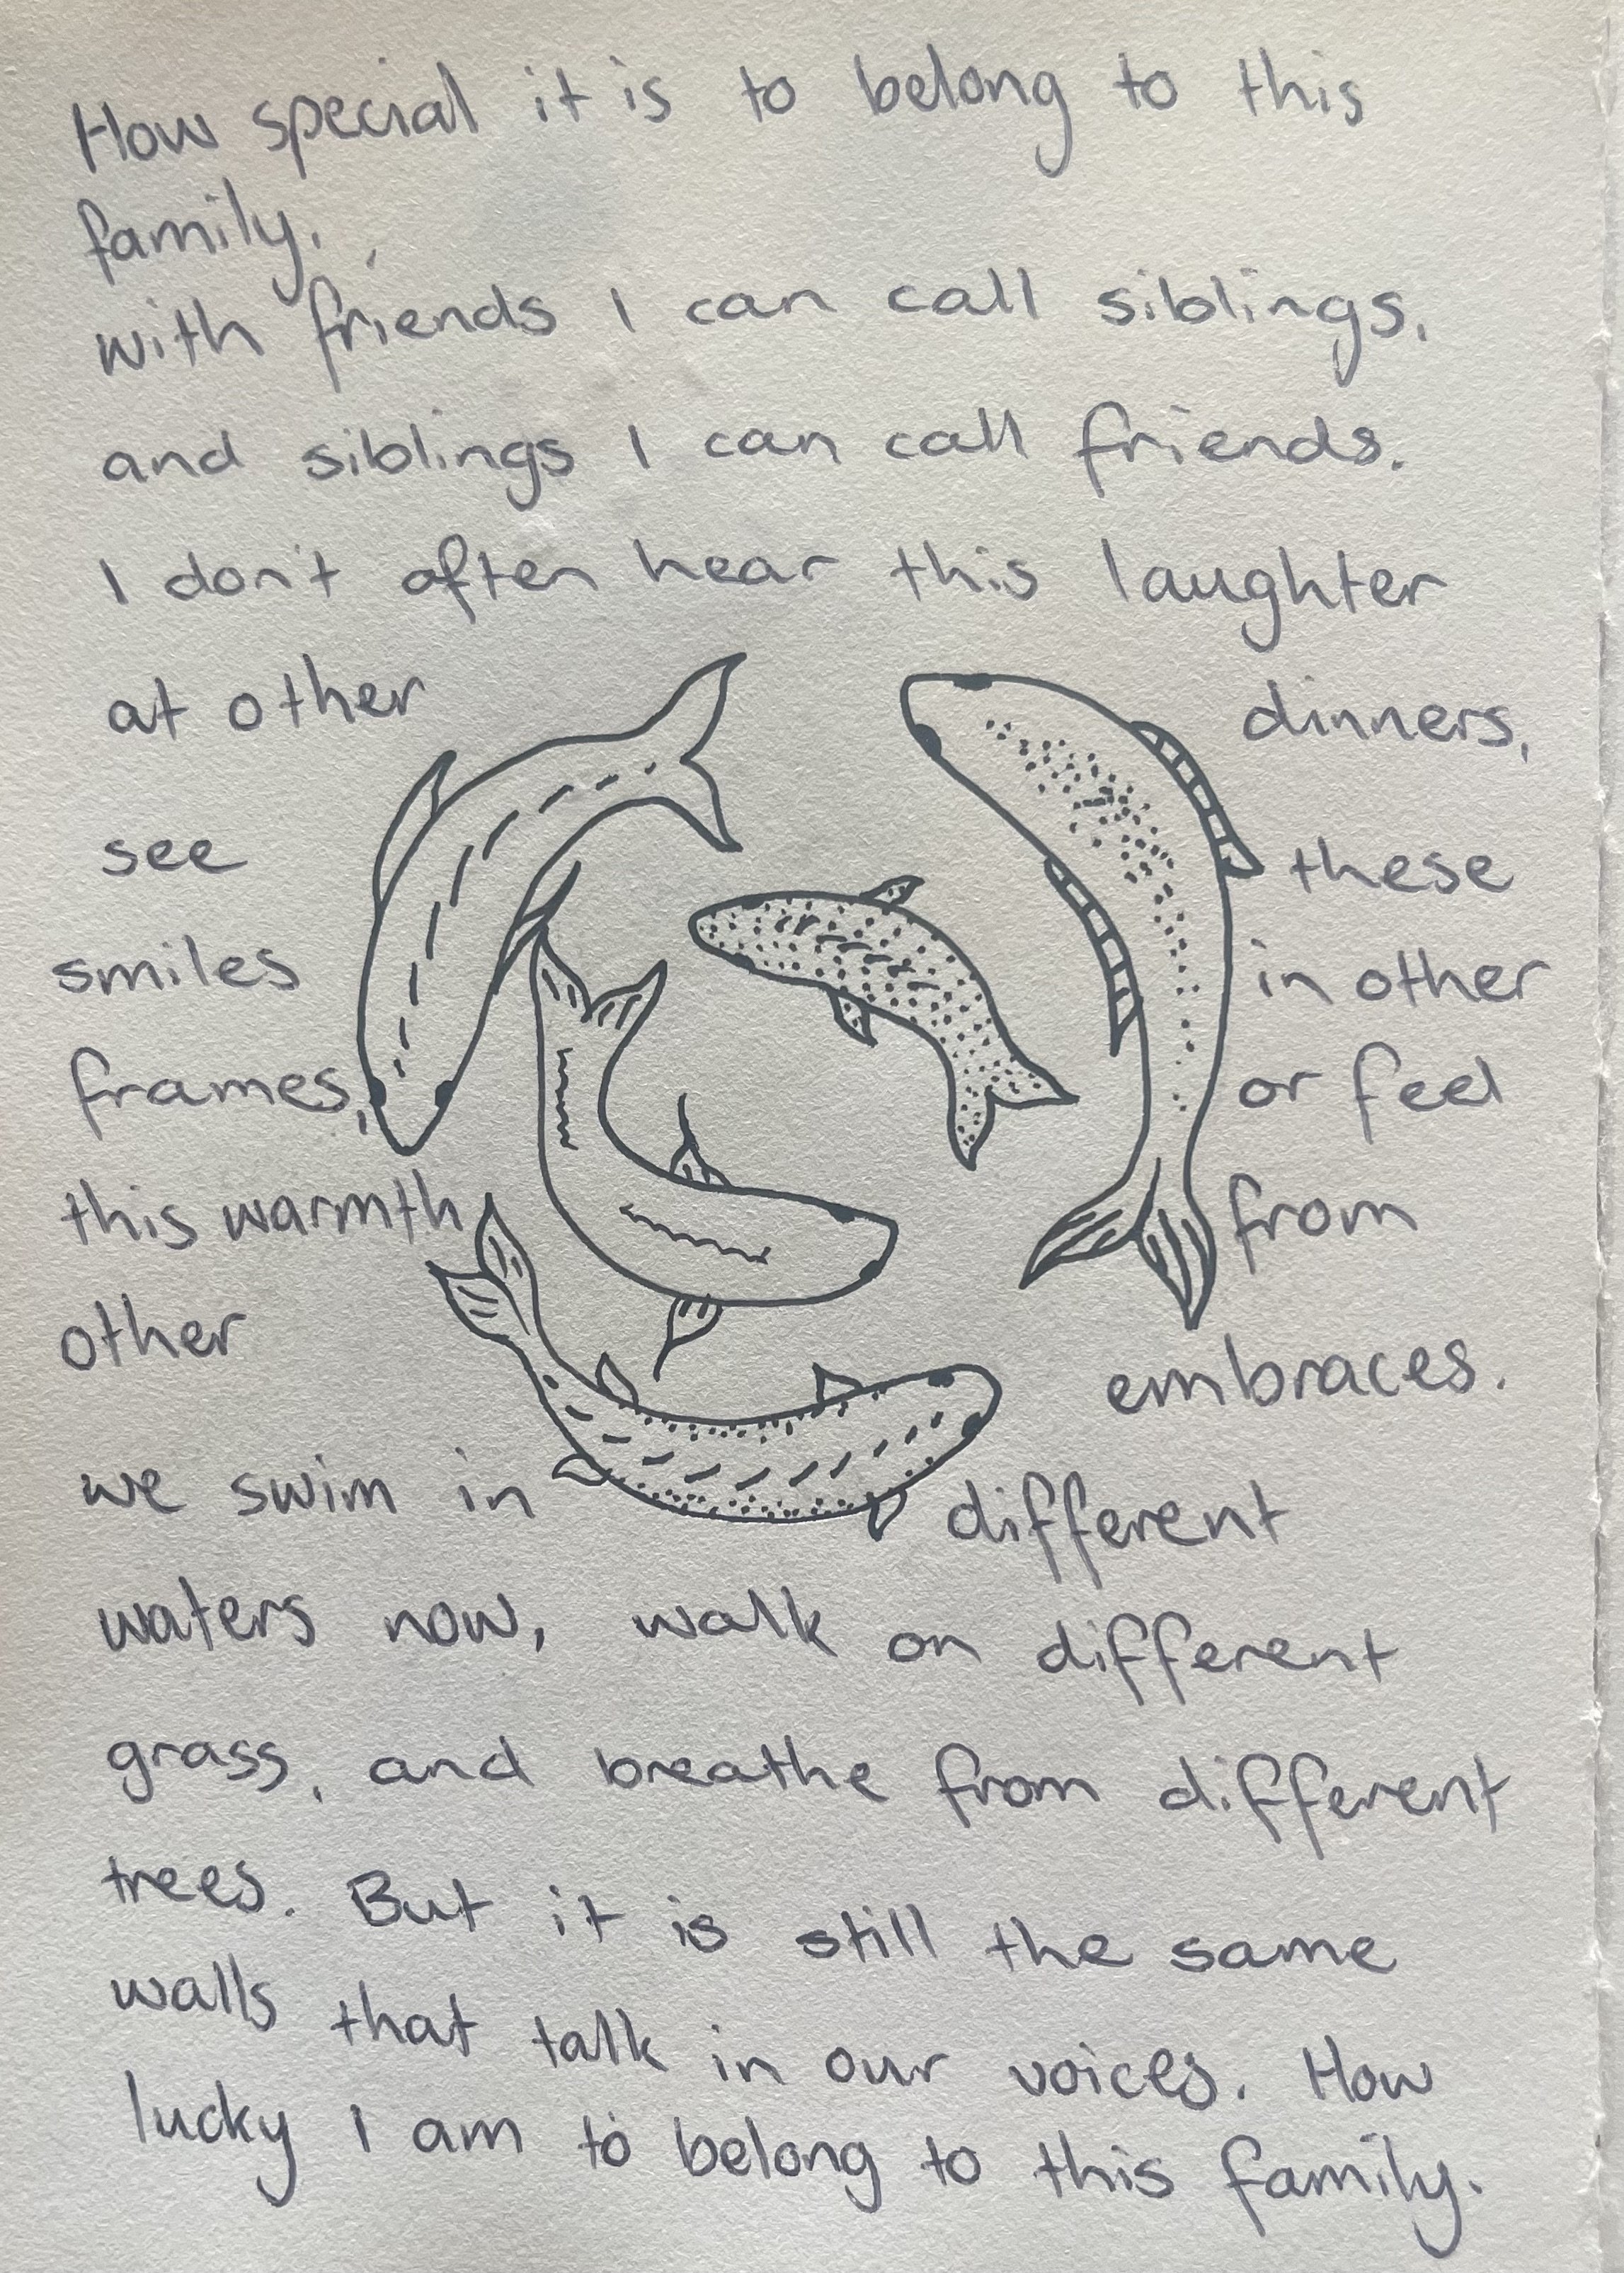 How special it is to belong to this
family.
with friends I can call siblings,
and siblings I can call friends.
I don't often hear this laughter
at other dinners,
see these
smiles in other
frames, or feel
this warmth from
other embraces.
we swim in different
waters now, walk on different
grass, and breathe from different
trees. But it is still the same
walls that talk in our voices. How
lucky I am to belong to this family.